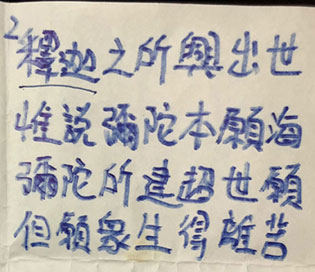 2
釋迦之所興出世
惟説彌陀本願海
彌陀所建超世願
但願衆生得離苦